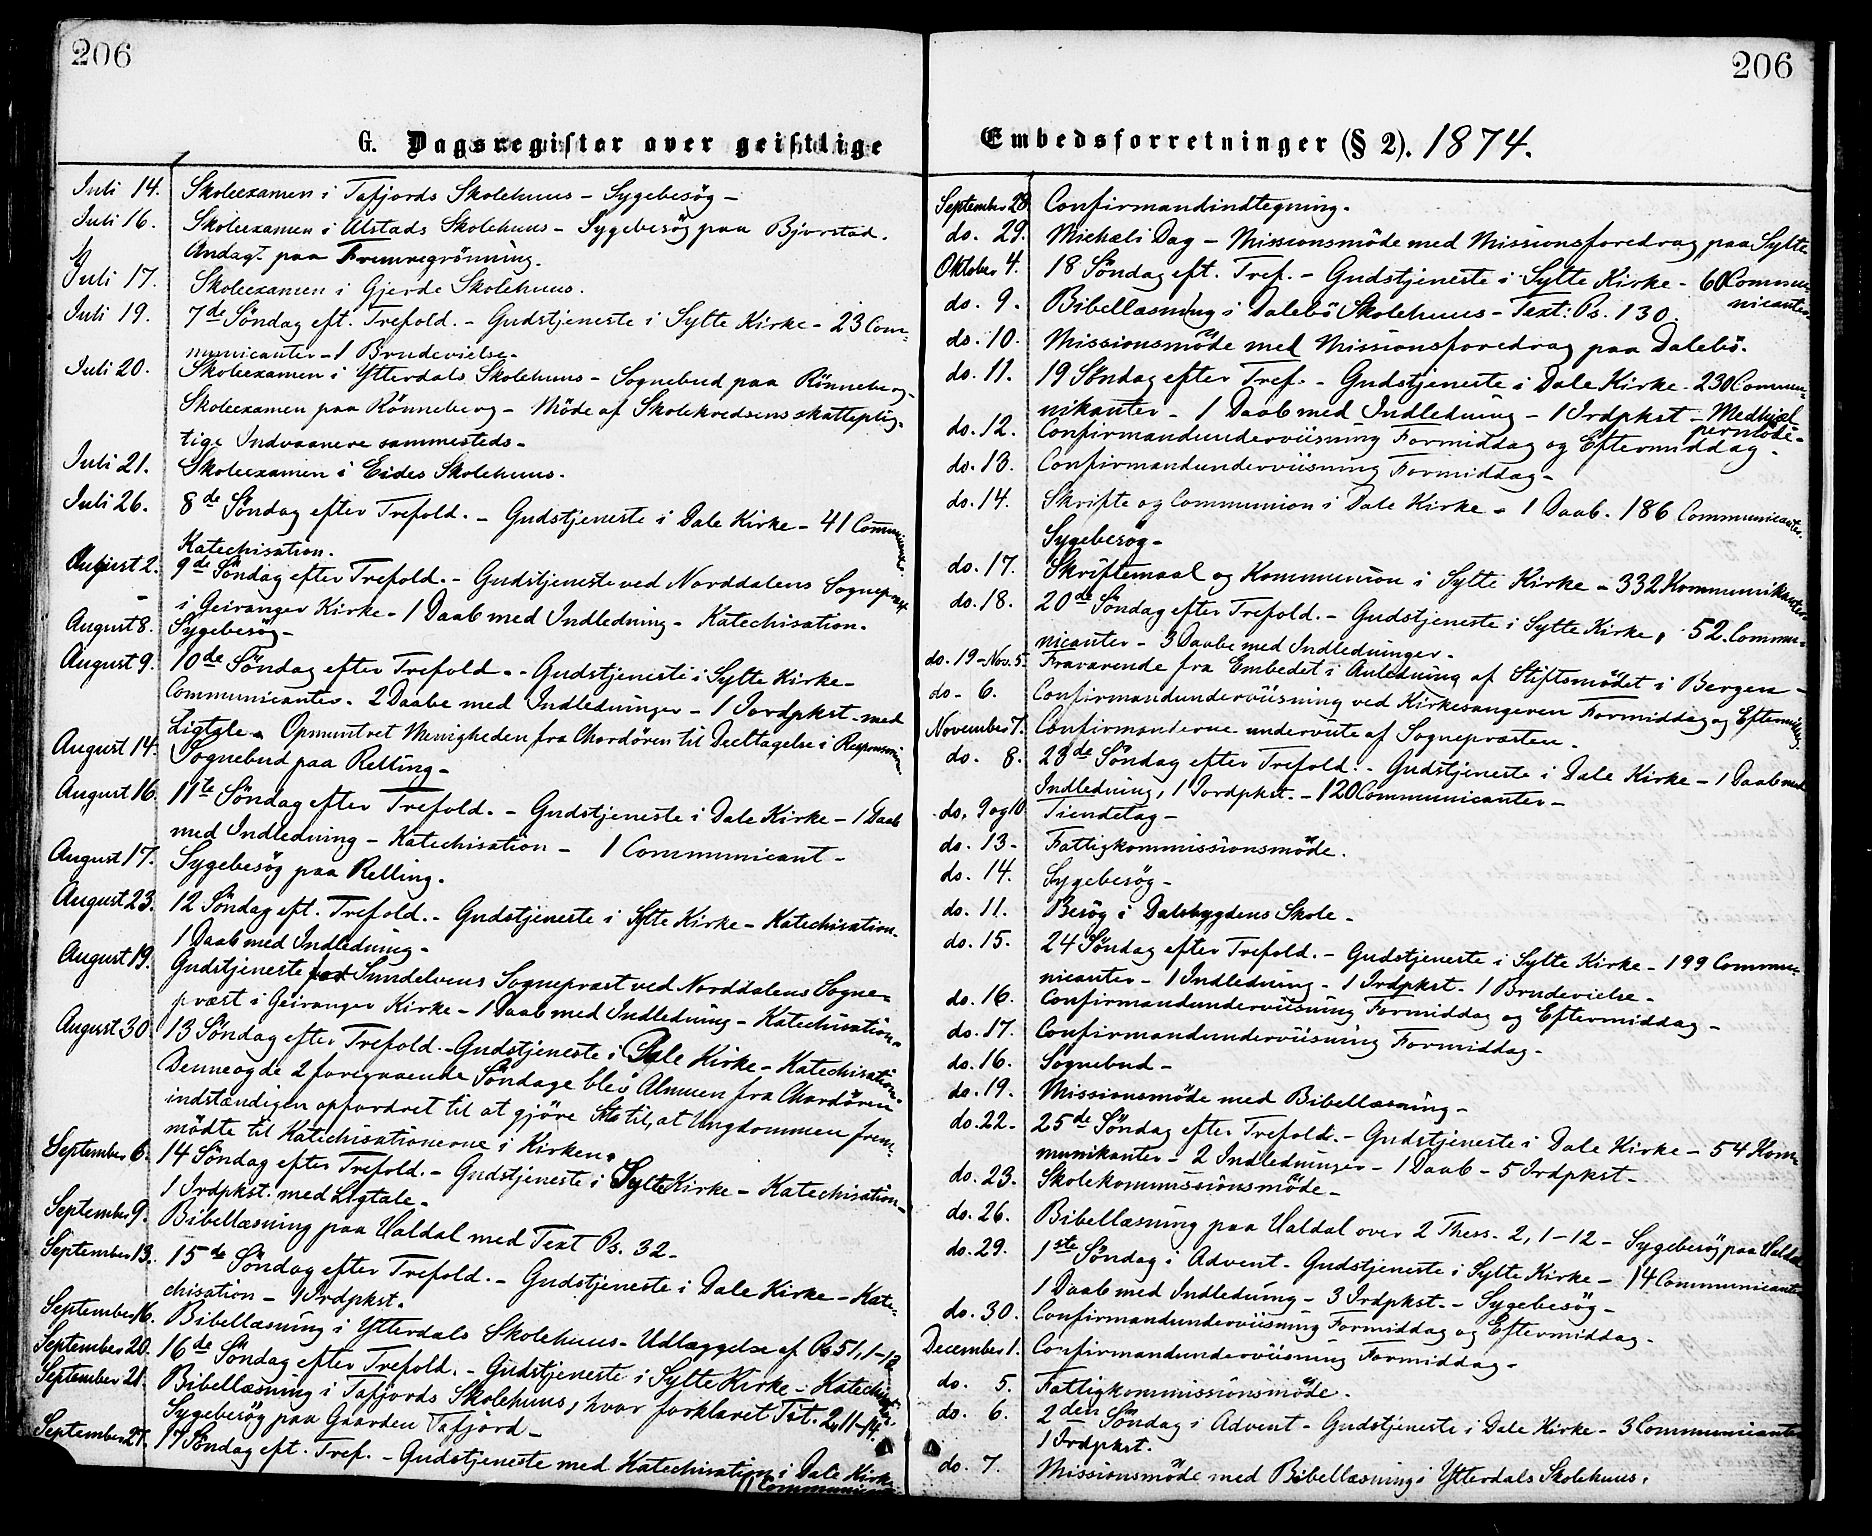 206
G. Dagsregister over geistlige
Juli 14. Skoleexamen i Tafjords Skolehuus – Sygebesög –
Juli 16. Skoleexamen i Alstads Skolehuus – Sygebesög paa Bjorstad.
Andagt paa Fremregrönning.
Juli 17. Skoleexamen i Gjerde Skolehuus.
Juli 19. 7de Söndag eft. Trefold. – Gudstjeneste i Sylte Kirke – 23 Com-
municanter – 1 Brudevielse –
Juli 20. Skoleexamen i Ytterdals Skolehuus – Sognebud paa Rönneberg –
Skoleexamen paa Rönneberg – Möde af Skolekredsens skatteplig-
tige Indvaanere sammesteds –
Juli 21. Skoleexamen i Eides Skolehuus.
Juli 26. 8de Söndag efter Trefold. – Gudstjeneste i Dale Kirke – 41 Communicanter
Katechisation.
August 2. 9de Söndag efter Trefold. – Gudstjeneste ved Norddalens Sognepræst
i Geiranger Kirke – 1 Daab med Indledning – Katechisation.
August 8. Sygebesög –
August 9. 10de Söndag efter Trefold. – Gudstjeneste i Sylte Kirke –
Communicanter – 2 Daabe med Indledninger – 1 Jordpkst. med
Ligtale – Opmuntret Menigheden fra Chordören til Deeltagelse i Responsorier
August 14. Sognebud paa Relling –
August 16. 11te Söndag efter Trefold. – Gudstjeneste i Dale Kirke – 1 Daab
med Indledning – Katechisation – 1 Communicant –
August 17. Sygebesög paa Relling.
August 23. 12 Söndag eft. Trefold. – Gudstjeneste i Sylte Kirke – Katechisation.
1 Daab med Indledning –
August 19. Gudstjeneste for Sunelvens Sognepræst ved Norddalens Sogne-
præst i Geiranger Kirke – 1 Daab med Indledning – Katechisation –
August 30. 13 Söndag efter Trefold. – Gudstjeneste i Dale Kirke – Katechisation –
Denne og de 2 foregaaende Söndage blev Almuen fra Chordören
indstændigen opfordret til at gjöre Sit til, at Ungdommen frem-
mödte til Katechisationerne i Kirken.
September 6. 14 Söndag efter Trefold. – Gudstjeneste i Sylte Kirke – Katechisation –
1 Jrdpkst. med Ligtale –
September 9. Bibellæsning paa Valdal med Text Ps. 32 –
September 13. 15de Söndag efter Trefold. – Gudstjeneste i Dale Kirke – Kate-
chisation – 1 Jrdpkst.
September 16. Bibellæsning i Ytterdals Skolehuus – Udlæggelse af Ps 51, 1–13
September 20. 16de Söndag efter Trefold. – Gudstjeneste i Sylte Kirke – Katechisation
September 21. Bibellæsning i Tafjords Skolehuus, hvor forklaret Tit. 2, 11–14.
Sygebesög paa Gaarden Tafjord –
September 27. 17 Söndag eft. Tref. – Gudstjeneste med Katechisation i Dale Kirke
206
Embedsforretninger (§ 2). 1874.
September 28. Confirmandindtegning.
do. 29. Michaeli Dag – Missionsmöde med Missionsforedrag paa Sylte
Oktober 4. 18 Söndag eft. Tref. – Gudstjeneste i Sylte Kirke – 60 Commu-
nicanter
do. 9. Bibellæsning i Dalebö Skolehuus – Text: Ps. 130.
do. 10. Missionsmöde med Missionsforedrag paa Dalebö.
do. 11. 19 Söndag efter Tref. – Gudstjeneste i Dale Kirke – 230 Commu-
nikanter – 1 Daab med Indledning – 1 Jrdpkst – Medhjæl-
permöde –
do. 12. Confirmandunderviisning Formiddag og Eftermiddag –
do. 13. Confirmandunderviisning Formiddag –
do. 14. Skrifte og Communion i Dale Kirke – 1 Daab. 186 Communicanter.
Sygebesög –
do. 17. Skriftemaal og Kommunion i Sylte Kirke – 332 Kommunikanter
do. 18. 20de Söndag efter Trefold. – Gudstjeneste i Sylte Kirke, 52 Commu-
nicanter – 3 Daabe med Indledninger –
do. 19 – Nov. 5. Fraværende fra Embedet i Anledning af Stiftsmödet i Bergen –
do – 6. Confirmandunderviisning ved Kirkesangeren Formiddag og Eftermiddag
November 7. Confirmanterne underviste af Sognepræsten.
do. 8. 23de Söndag efter Trefold. – Gudstjeneste i Dale Kirke – 1 Daab med
Indledning, 1 Jordpkst. – 120 Communicanter –
do. 9 og 10 Tiendetag –
do. 13 – Fattigkommissionsmöde.
do. 14. Sygebesög –
do. 11. Besög i Dalsbygdens Skole –
do. 15. 24 Söndag efter Trefold. – Gudstjeneste i Sylte Kirke – 199 Commu-
nicanter – 1 Indledning – 1 Jrdpkst. 1 Brudevielse –
do. 16. Confirmandunderviisning Formiddag og Eftermiddag –
do. 17. Confirmandunderviisning Formiddag –
do. 16. Sognebud –
do. 19. Missionsmöde med Bibellæsning –
do. 22 – 25de Söndag efter Trefold. – Gudstjeneste i Dale Kirke – 54 Kom-
munikanter – 2 Indledninger – 1 Daab – 5 Jrdpkst –
do. 23. Skolekommissionsmöde –
do. 26. Bibellæsning paa Valdal over 2 Thess. 2, 1–12 – Sygebesög paa Valdal
do. 29. 1ste Söndag i Advent – Gudstjeneste i Sylte Kirke – 14 Communicanter
1 Daab med Indledning – 3 Jrdpkst. – Sygebesög –
do. 30. Confirmandunderviisning Formiddag og Eftermiddag –
December 1. Confirmandunderviisning Formiddag –
do. 5. Fattigkommissionsmöde –
do. 6. 2den Söndag i Advent – Gudstjeneste i Dale Kirke – 3 Communicanter
1 Jrdpkst.
do. 7. Missionsmöde med Bibellæsning i Ytterdals Skolehuus.